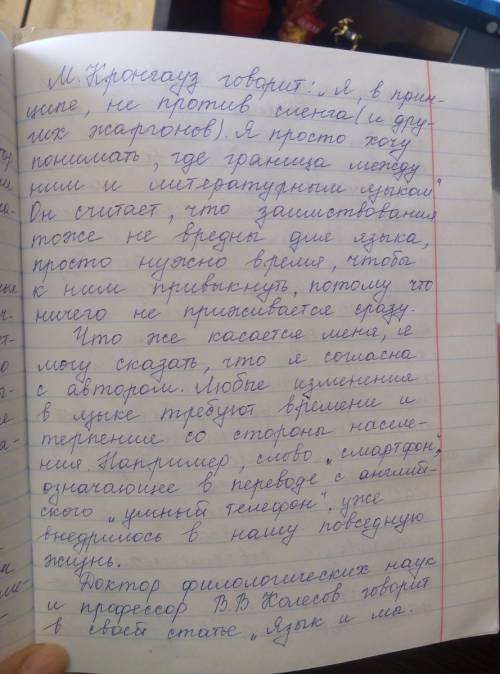 М. Кронгауз говорит: „Я, в прин-
ципе, не против сленга (и дру-
гих жаргонов). Я просто хочу
понимать, где граница между
ним и литературным языком"
Он считает, что заимствования
тоже не вредны для языка,
просто нужно время, чтобы
к ним привыкнуть, потому что
ничего не приживается сразу.
Что же касается меня, я
могу сказать, что я согласна
с автором. Любые изменения
в языке требуют времени и
терпение со стороны населе-
ния. Например, слово „смартфон",
означающее в переводе с англий-
ского „умный телефон", уже
внедрилось в нашу повседную
жизнь.
Доктор филологических наук
и профессор В.В. Колесов говорит
в своей статье „Язык и ма.